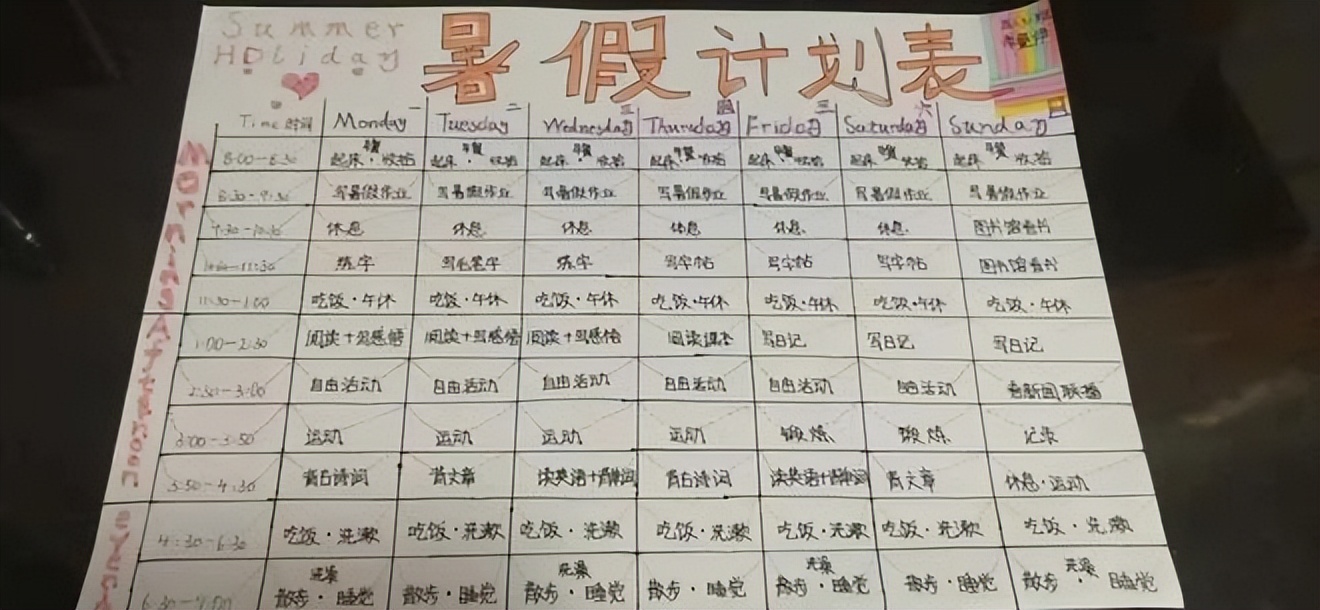 Summer
Holiday
暑假计划表
一 二 三 四 三 六 日
Time 时间 Monday Tuesday Wednesday Thursday Friday Saturday Sunday
Morning
8:00-8:30 起床·早餐 收拾 起床·早餐 收拾 起床·早餐 收拾 起床·早餐 收拾 起床·早餐 收拾 起床·早餐 收拾 起床·早餐 收拾
8:30-9:30 写暑假作业 写暑假作业 写暑假作业 写暑假作业 写暑假作业 写暑假作业 写暑假作业
9:30-10:30 休息 休息 休息 休息 休息 休息 图书馆看书
11:30 练字 写毛笔字 练字 写字帖 写字帖 写字帖 图书馆看书
11:30-1:00 吃饭·午休 吃饭·午休 吃饭·午休 吃饭·午休 吃饭·午休 吃饭·午休 吃饭·午休
Afternoon
1:00-2:30 阅读+写感悟 阅读+写感悟 阅读+写感悟 阅读课本 写日记 写日记 写日记
2:30-3:00 自由活动 自由活动 自由活动 自由活动 自由活动 自由活动 看新闻联播
3:00-3:50 运动 运动 运动 运动 锻炼 锻炼 记录
3:50-4:30 背古诗词 背文章 读英语+背单词 背古诗词 读英语+背单词 背文章 休息·运动
4:30-6:30 吃饭·洗漱 吃饭·洗漱 吃饭·洗漱 吃饭·洗漱 吃饭·洗漱 吃饭·洗漱 吃饭·洗漱
6:30-9:00 散步·洗澡 睡觉 散步·睡觉 散步·洗澡 睡觉 散步·睡觉 散步·洗澡 睡觉 散步·睡觉 散步·洗澡 睡觉